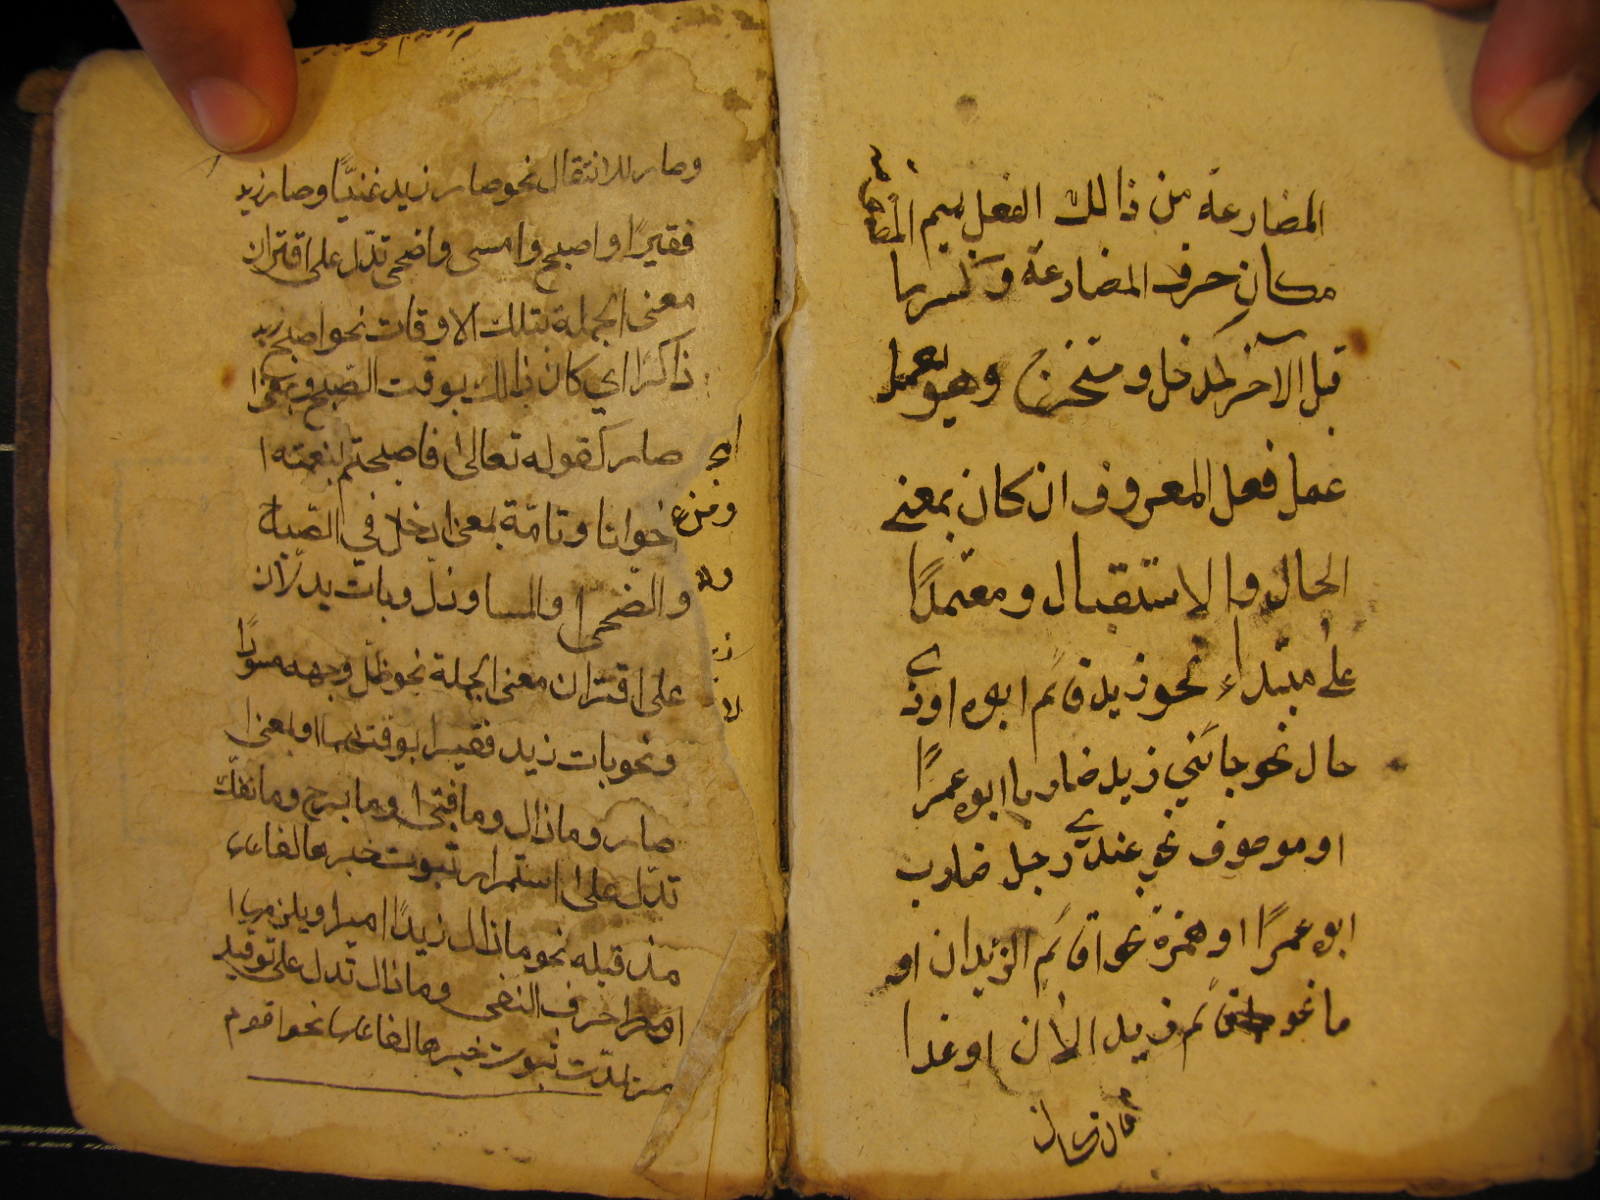 المضارعة من ذالك الفعل بميم المضمومة
مكان حرف المضارعة وكسرها
قبل الآخر كمدخل ومتخرج وهو يعمل
عمل فعل المعروف ان كان بمعني
الحال والاستقبال ومعتمدًا
علي مبتداء نحو زيد قائم ابوه او ذي
حال نحو جائني زيد ضاربا ابوه عمرًا
او موصوف نحو عندي رجل ضارب
ابوه عمرًا او همزة نحو اقائم الزيدان او
ما نحو ما قائم زيد الان او غدا
وصار للانتقال نحو صار زيد غنيًّا وصار زيد
فقيرًا واصبح وامسى واضحى تدّل على اقتران
معنى الجملة بتلك الاوقات نحو اصبح زيد
ذاكرًا اي كان ذالك بوقت الصبح وبمعنا
صار كقوله تعالى فاصبحتم بنعمته ا
خوانا وتامّة بمعنا دخل في الصباح
والضحى والمسا وظلّ وبات يدلّان
على اقتران معنى الجملة نحو ظلّ وجهه مسودًا
ونحو بات زيد فقيرا بوقتهما او بمعنا
صار وما زال وما فتى وما برح وما نفك
تدّل على استمرار ثبوت خبرها لفاعلها
مذ قبله نحو ما زال زيدًا اميرا ويلزمها
حرف النفي وما زال تدل على توقيد
مدّت ثبوت خبرها لفاعلها نحو اقوم